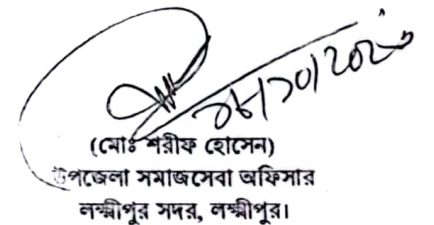 (মোঃ শরীফ হোসেন)
উপজেলা সমাজসেবা অফিসার
লক্ষ্মীপুর সদর, লক্ষ্মীপুর।